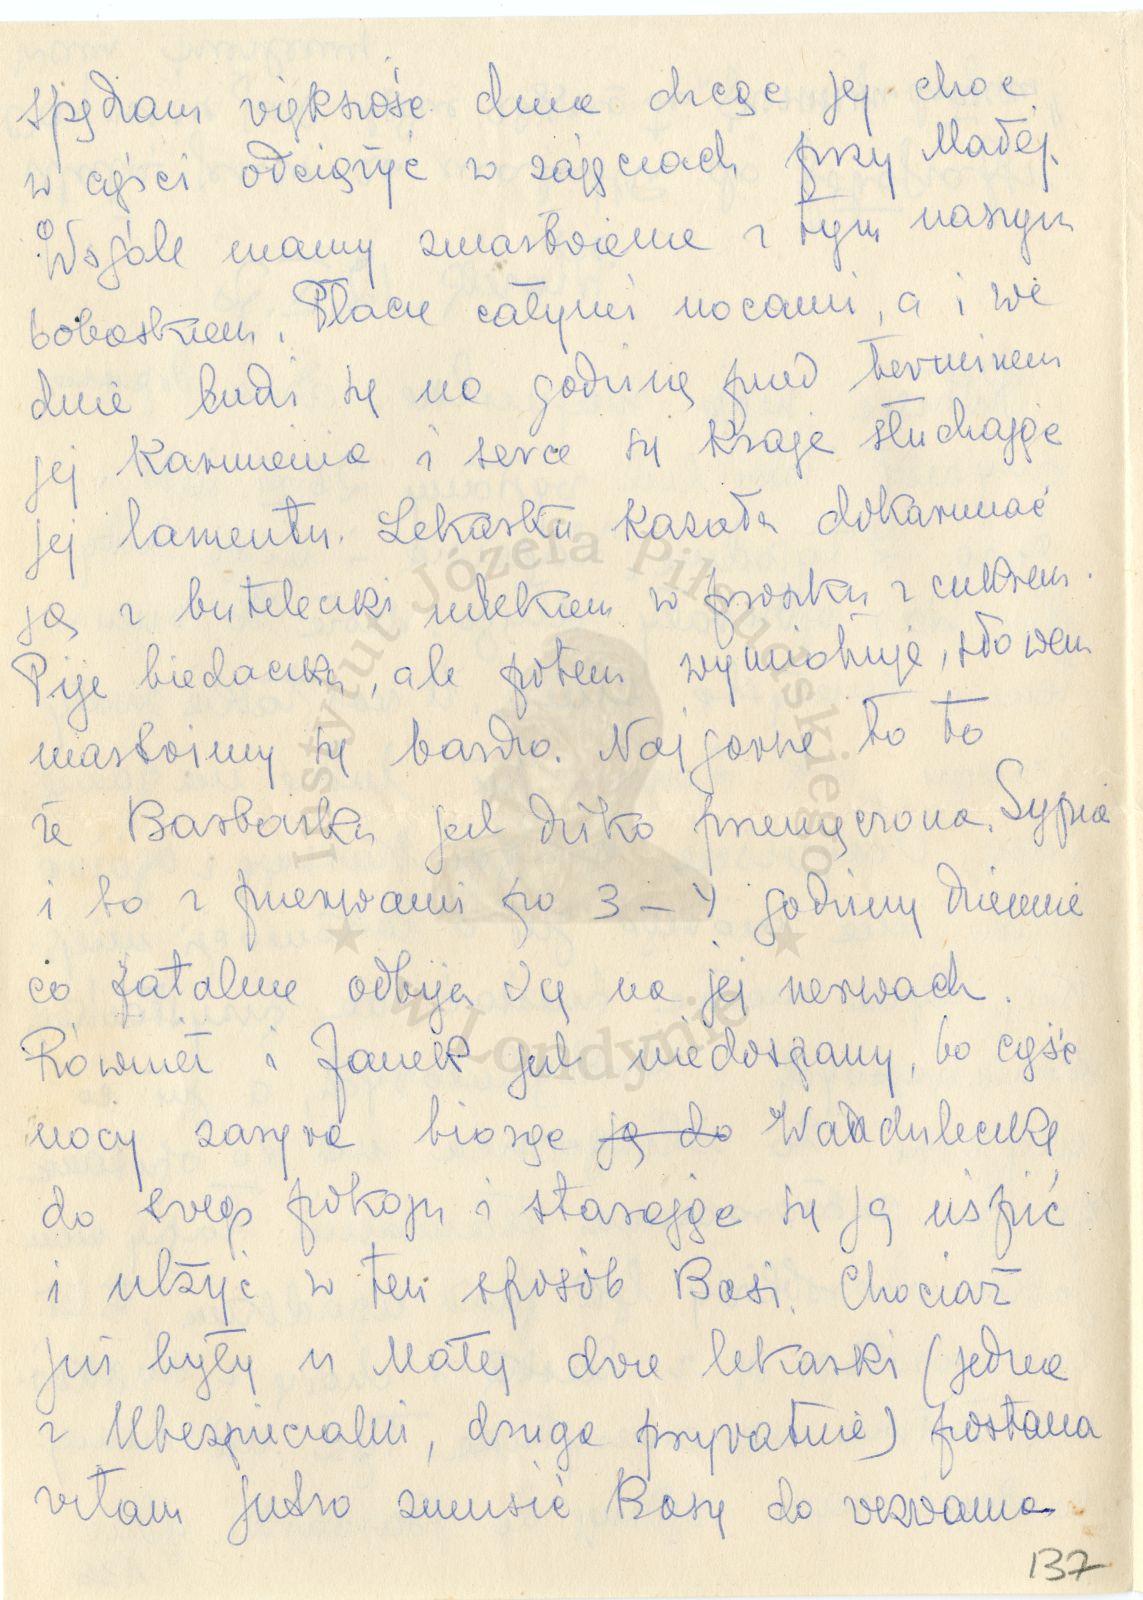 spędzam większość dnia chcąc jej choć
w części odciążyć w zajęciach przy Małej.
Wogóle mamy zmartwienie z tym naszym
bobaskiem. Płacze całymi nocami, a i we
dnie budzi się na godzinę przed terminem
jej karmienia i serce się kraje słuchając
jej lamentu. Lekarka kazała dokarmiać
ją z buteleczki mlekiem w proszku z cukrem.
Pije biedaczka, ale potem wymiotuje, słowem
martwimy się bardzo. Najgorsze to to
że Barbarka jest dziko przemęczona. Sypia
i to z przerwami po 3 – 4 godziny dziennie
co fatalnie odbija się na jej nerwach.
Również i Janek jest niedospany, bo część
nocy zarywa biorąc ją do Wanduleczkę
do swego pokoju i starając się ją uśpić
i ulżyć w ten sposób Basi. Chociaż
już były u Małej dwie lekarki (jedna
z Ubezpieczalni, druga prywatnie) postana
wiłam jutro zmusić Basię do wezwania
137
Instytut Józefa Piłsudskiego
w Londynie